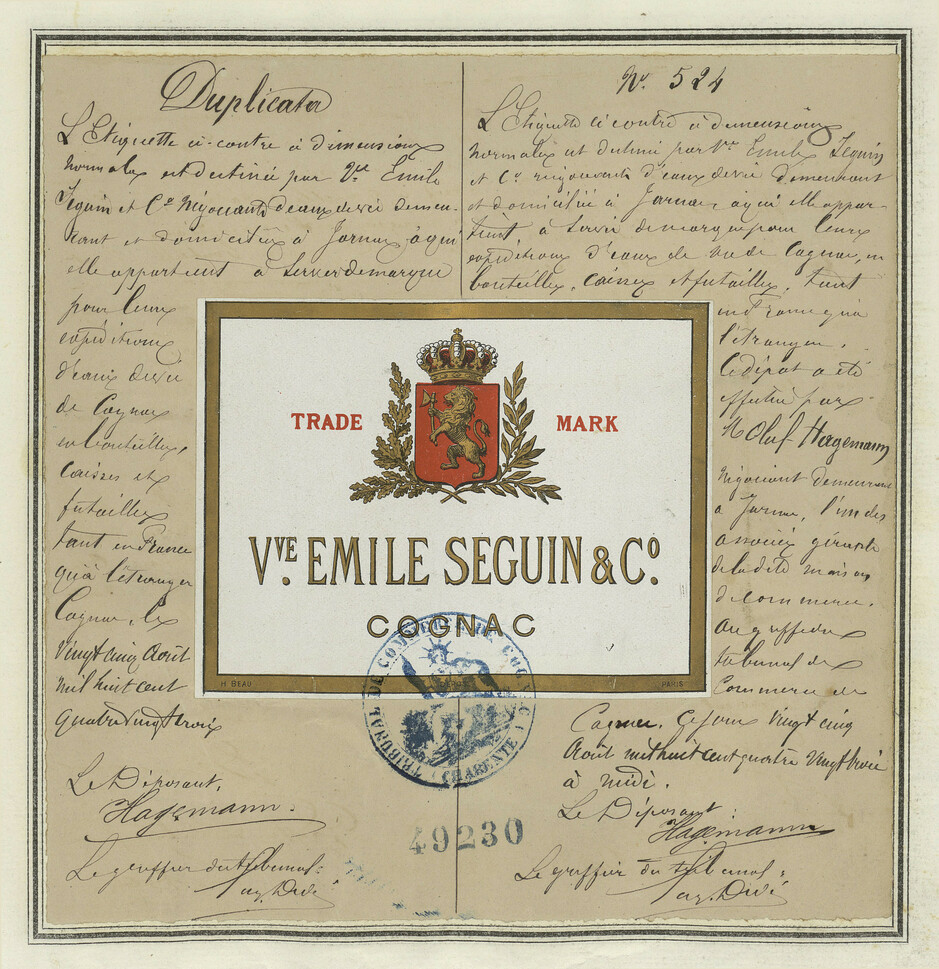 Duplicata
L'Etiquette ci-contre à dimensions
normales est destinée par Vve Emile
Seguin et Co Négociants d'eaux de vie demeu-
rant et domiciliés à Jarnac à qui
elle appartient à servir de marque
pour leurs
expéditions
d'eaux de vie
de Cognac
en bouteilles,
caisses et
futailles
tant en France
qu'à l'étranger
Cognac, le
vingt cinq Août
mil huit cent
quatre vingt trois
Le Déposant,
Hagemann.
Le greffier du tribunal:
No. 524
L'Etiquette ci contre à dimensions
normales est destinée par Vve Emile Seguin
et Co négociants d'eaux de vie demeurant
et domiciliés à Jarnac, à qui elle appar-
tient à servir de marque pour leurs
expéditions d'eaux de vie de Cognac, en
bouteilles, caisses et futailles, tant
en France qu'à
l'étranger.
Le dépôt a été
effectué par
M Oluf Hagemann
négociant demeurant
à Jarnac, l'un des
associés gérants
de la dite maison
de commerce.
Au greffe du
tribunal de
Commerce de
Cognac, ce jour vingt cinq
Août mil huit cent quatre vingt trois
à midi.
Le Déposant:
Hagemann
Le greffier du tribunal:
TRADE MARK
Vve. EMILE SEGUIN & Co.
COGNAC
H. BEAU
PARIS
TRIBUNAL DE COMMERCE DE COGNAC
(CHARENTE)
49230